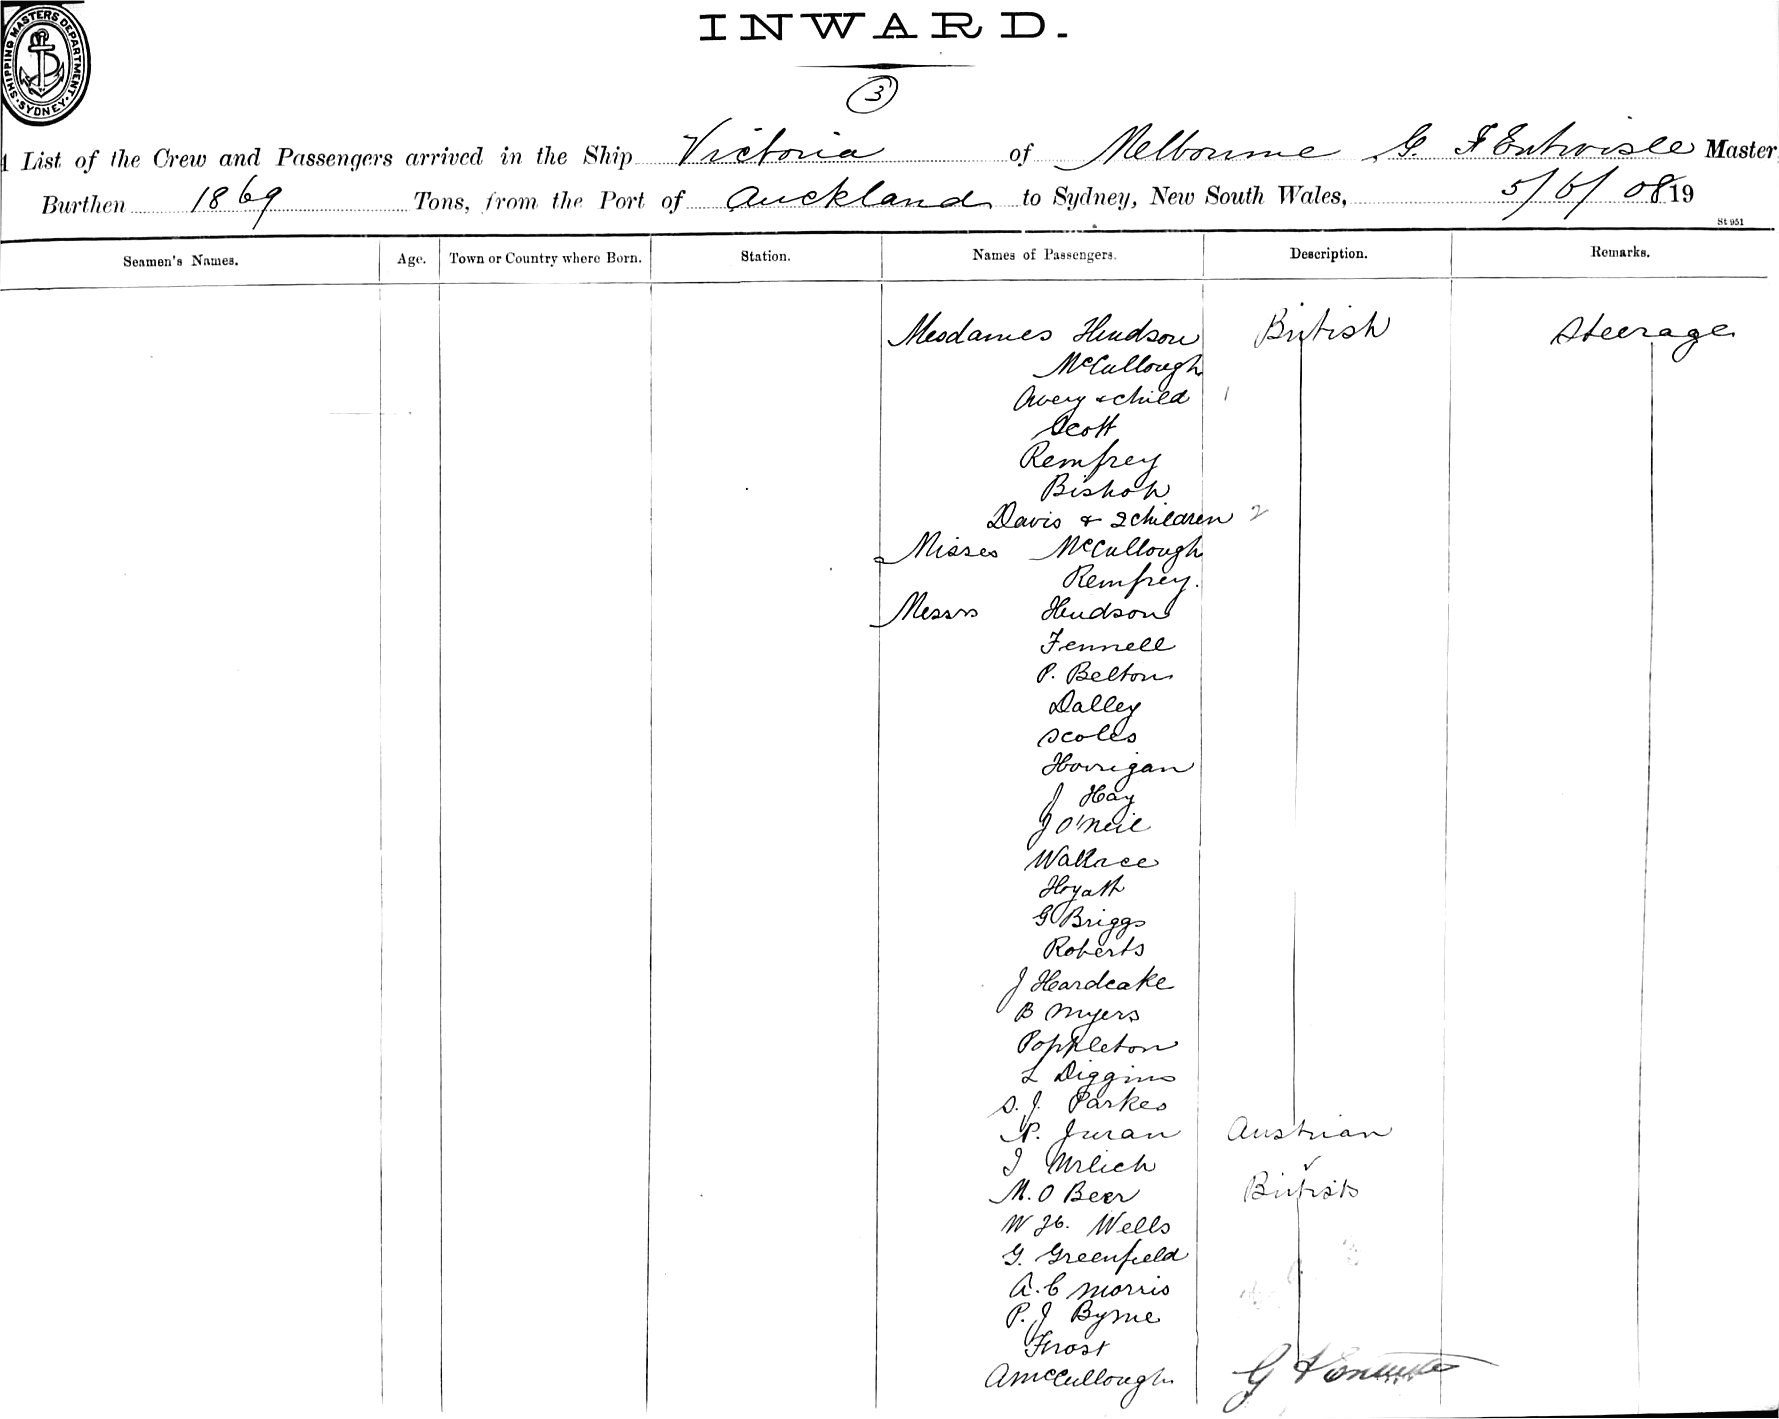 SHIPPING MASTERS DEPARTMENT. SYDNEY.
INWARD.
3
List of the Crew and Passengers arrived in the Ship Victoria of Melbourne G. F Entwisle Master
Burthen 1869 Tons, from the Port of Auckland to Sydney, New South Wales, 5/6/08 19
St 951
Seamen's Names. Age. Town or Country where Born. Station. Names of Passengers. Description. Remarks.
Mesdames Hudson British Steerage
McCullough
Avery & child 1
Scott
Remfrey
Bishop
Davis & 2 children 2
Misses McCullough
Remfrey.
Messrs Hudson
Fennell
P. Belton
Dalley
Scoles
Horrigan
J Hay
J O'Neil
Wallace
Hyatt
G Briggs
Roberts
J Hardcake
B Myers
Poppleton
L Diggins
S. J. Parkes
N. Juran Austrian
J Urlich
M. O Beer British
W H. Wells
G. Greenfield
A. C Morris
P. J Byrne
Frost
A McCullough